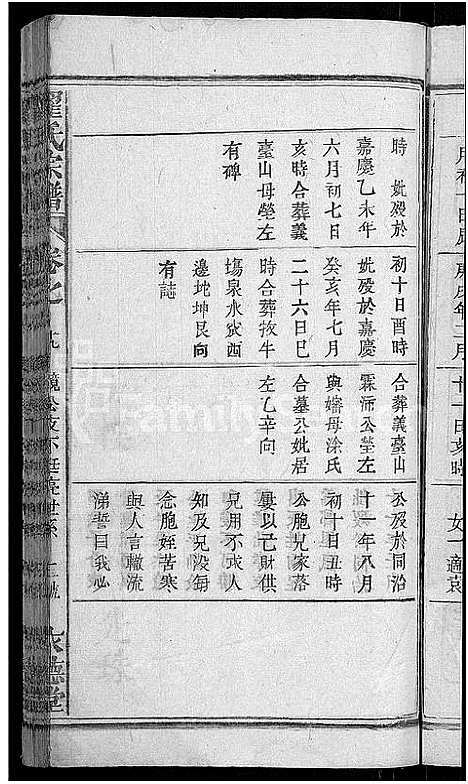 時 妣殁於
嘉慶乙未年
六月初七日
亥時合葬義
臺山母塋左
有碑
初十日酉時
妣殁於嘉慶
癸亥年七月
二十六日巳
時合葬牧牛
塲泉水㘭西
邊坤艮向
有誌
合葬義臺山
霖沛公塋左
與嬸母涂氏
合墓公妣居
左乙辛向
公殁於同治
十一年八月
初十日丑時
公胞兄家落
屢以己財供
兄用不求人
知及兄殁每
念胞姪苦寒
與人言輙流
涕誓曰我必
翟氏宗譜
卷之
九
鏡公支不
世系
敦德堂
女一適袁
FamilySearch